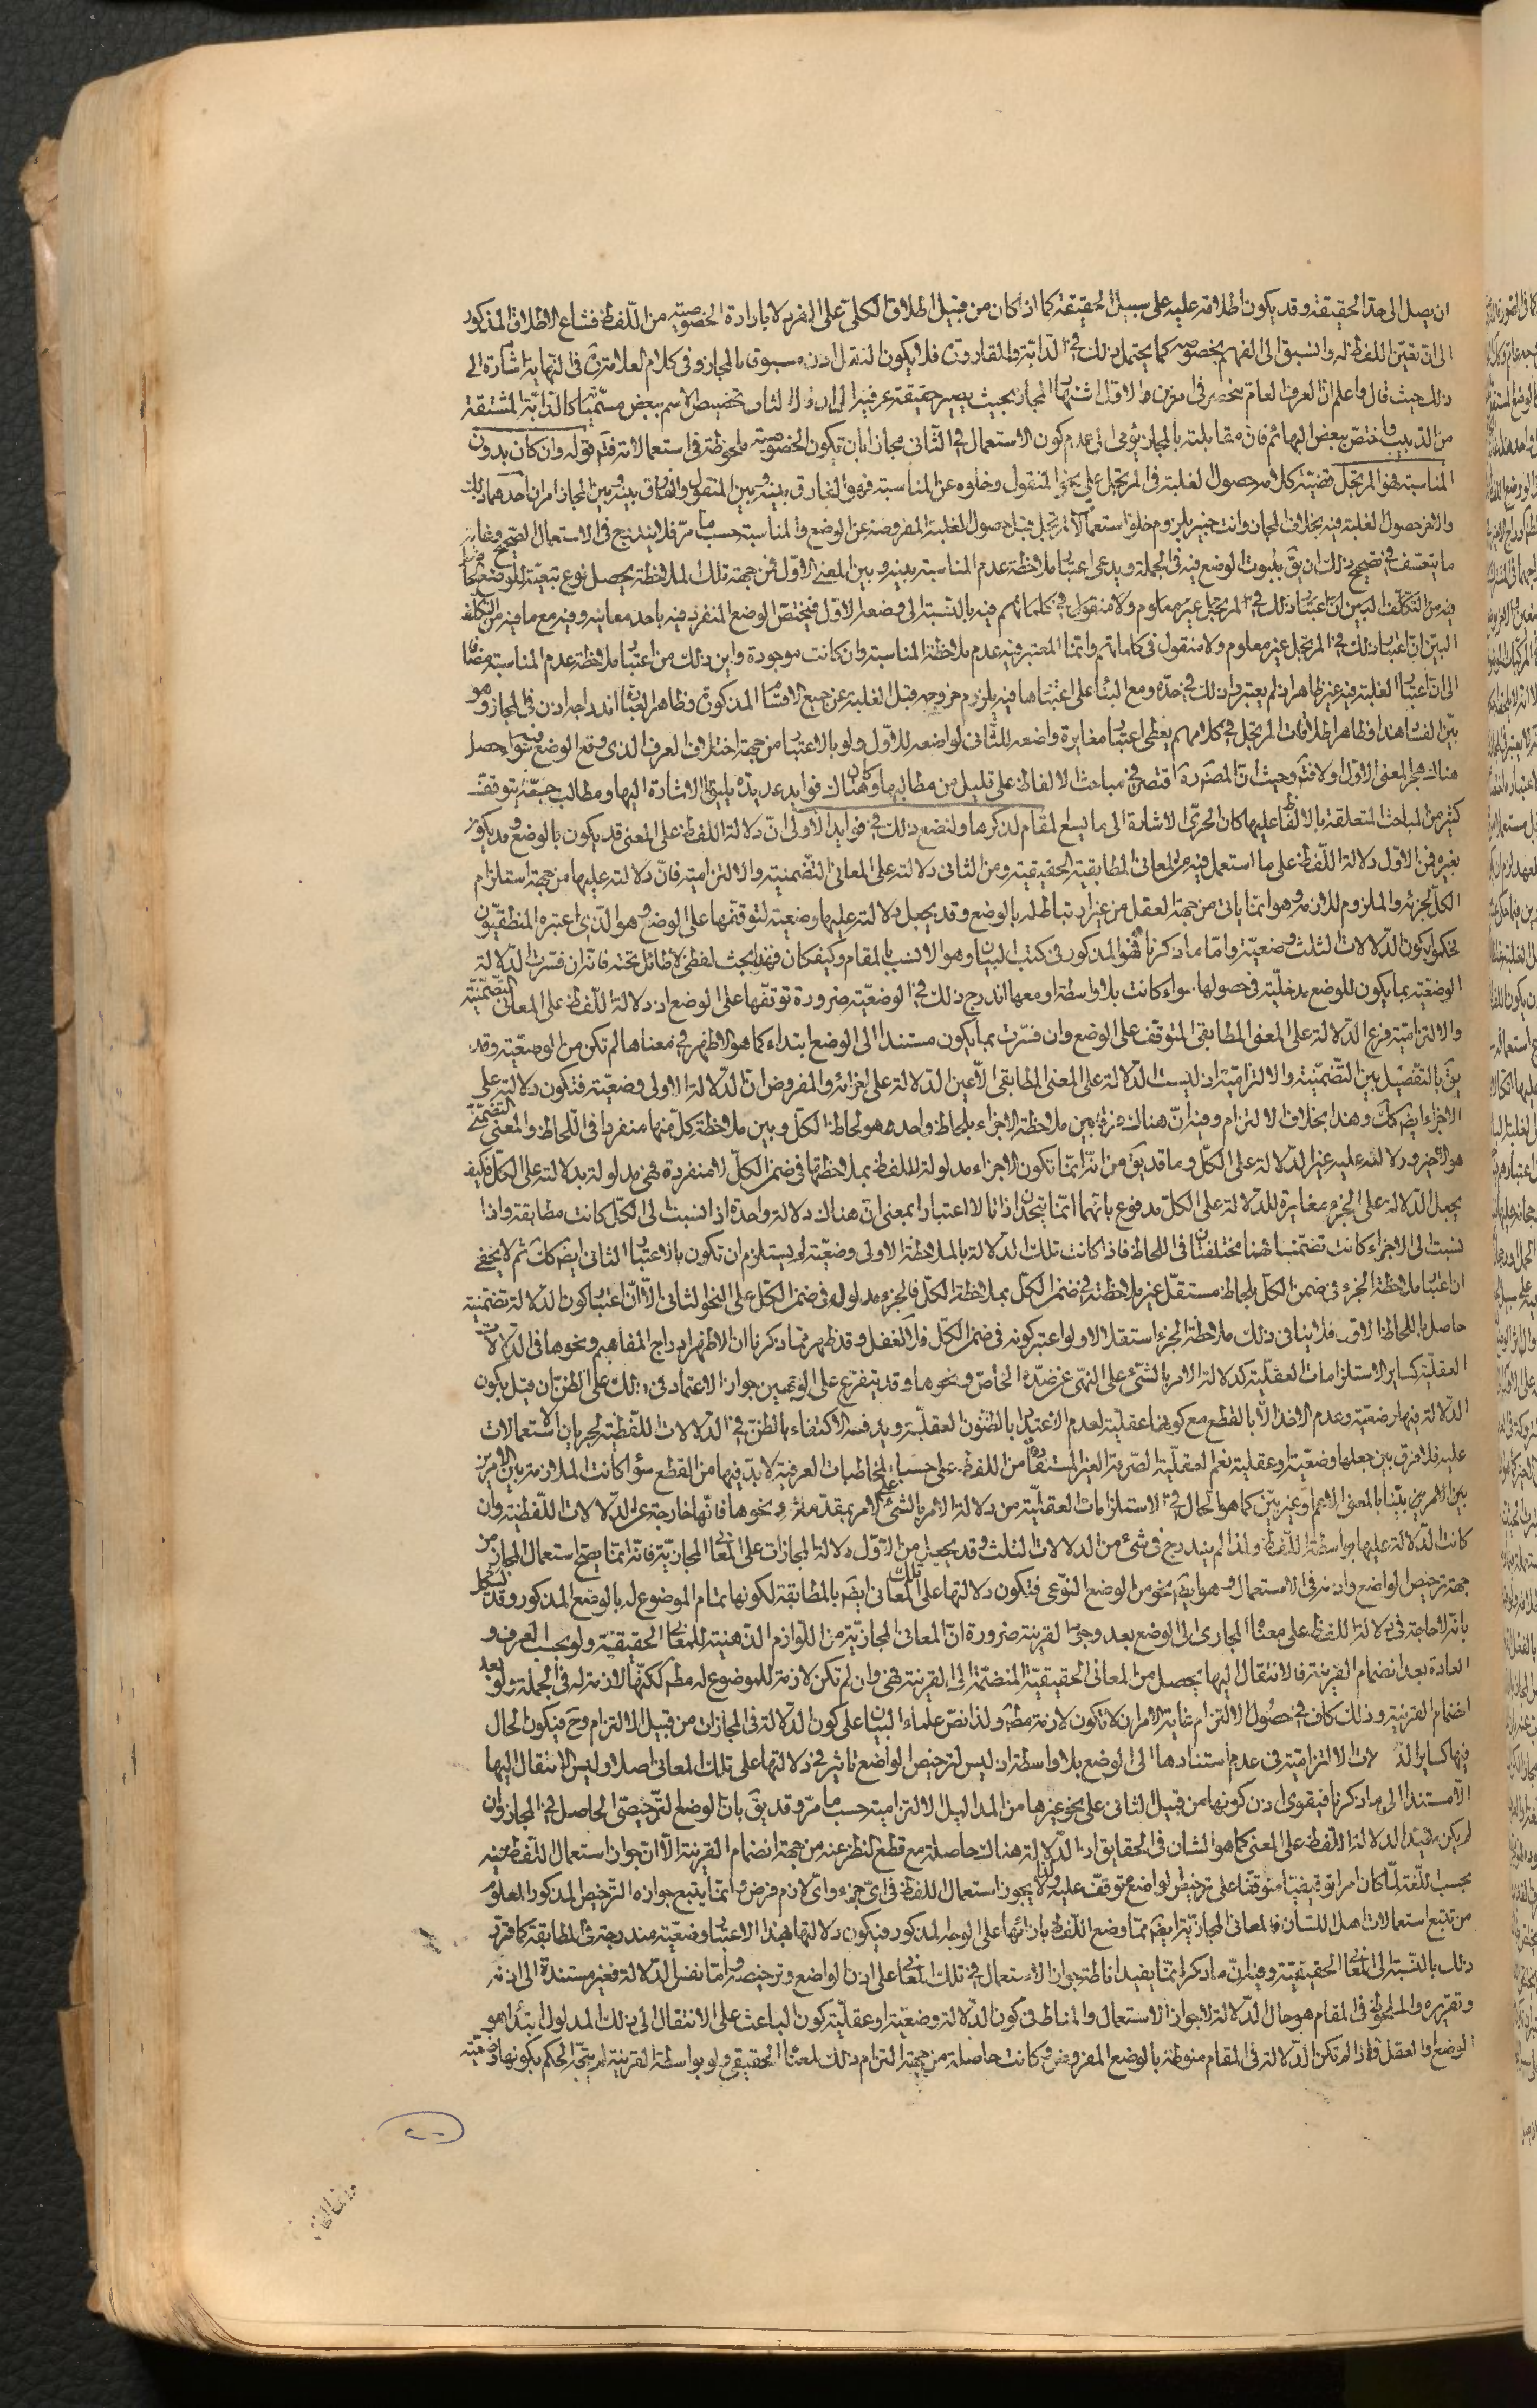 ان يصل الى حد الحقيقة وقد يكون اطلاقه عليه على سبيل الحقيقة كما اذا كان من قبيل اطلاق الكلى على الفرد لا بارادة الخصوصية من اللفظ فشاع الاطلاق المذكور
الى ان تعين اللفظ له وانسبق الى الفهم بخصوصه كما يحتمل ذلك في الدابة والقارورة فلا يكون النقل اذن مسبوقا بالمجاز وفى كلام العلامة ره فى النهاية اشارة الى
ذلك حيث قال واعلم ان العرف العام منحصر فى امرين الاول اشتهار المجاز بحيث يصير حقيقة عرفية الى ان قال الثانى تخصيص الاسم ببعض مسمياته كالدابة المشتقة
من الدبيب واختص ببعض البهائم فان مقابلته بالمجاز يؤمى الى عدم كون الاستعمال في الثانى مجازا بان يكون الخصوصية ملحوظة فى استعمالاته فتم قوله وان كان بدون
المناسبة فهو المرتجل قضية كلامه حصول الغلبة فى المرتجل على نحو المنقول وخلوه عن المناسبة فهو الفارق بينه وبين المنقول والفارق بينه وبين المجاز امران احدهما ذلك
والاخر حصول الغلبة فيه بخلاف المجاز وانت خبير بلزوم خلو استعمالات المرتجل قبل حصول الغلبة المفروضة عن الوضع والمناسبة حسب ما مر فلا يندرج فى الاستعمال الصحيح وغاية
ما يتعسف في تصحيح ذلك ان يق بثبوت الوضع فيه فى الجملة ويدعى اعتبار ملاحظة عدم المناسبة بينه وبين المعنى الاول فمن جهة تلك الملاحظة يحصل نوع تبعية للوضع
فيه من التكلف البين ان اعتبار ذلك في المرتجل غير معلوم ولا منقول في كلماتهم فيه بالنسبة الى وضعه الاول فيختص الوضع المنفرد فيه باحد معانيه وفيه مع ما فيه من التكلف
البين ان اعتبار ذلك في المرتجل غير معلوم ولا منقول فى كلماتهم وانما المعتبر فيه عدم ملاحظة المناسبة وان كانت موجودة واين ذلك من اعتبار ملاحظة عدم المناسبة مضافا
الى ان اعتبار الغلبة فيه غير ظاهر اذ لم يعتبروا ذلك في حده ومع البناء على اعتبارها فيه يلزم خروجه قبل الغلبة عن جميع الاقسام المذكورة وظاهر العبارة اندراجه اذن في المجاز وهو
بين الفساد هذا وظاهر اطلاقات المرتجل في كلامهم يعطى اعتبار مغايرة واضعه للثانى لواضعه للاول ولو بالاعتبار من جهة اختلاف العرف الذى وقع الوضع فيه سواء حصل
هناك هجر المعنى الاول او لا فتم وحيث ان المصنف ره اقتصر في مباحث الالفاظ على قليل من مطالبها وكان هناك فوايد عديدة يليق الاشارة اليها ومطالب جمة يتوقف
كثير من المباحث المتعلقة بالالفاظ عليها كان الحرى الاشارة الى ما يسع المقام لذكرها ولنضع ذلك في فوايد الاولى ان دلالة اللفظ على المعنى قد يكون بالوضع وقد يكون
بغيره فمن الاول دلالة اللفظ على ما استعمل فيه من المعانى المطابقية الحقيقية ومن الثانى دلالته على المعانى التضمنية والالتزامية فان دلالته عليها من جهة استلزام
الكل لجزئه والملزوم للازمه وهو انما ياتى من جهة العقل من غير ارتباط له بالوضع وقد يجعل دلالته عليها وضعية لتوقفها على الوضع وهو الذى اعتبره المنطقيون
فحكموا بكون الدلالات الثلث وضعية واما ما ذكرناه فهو المذكور فى كتب البيان وهو الانسب بالمقام وكيف كان فهذا بحث لفظى لا طائل تحته فانه ان فسرت الدلالة
الوضعية بما يكون للوضع مدخلية في حصولها سواء كانت بلا واسطة او معها اندرج ذلك في الوضعية ضرورة توقفها على الوضع اذ دلالة اللفظ على المعانى التضمنية
والالتزامية فرع الدلالة على المعنى المطابقى المتوقف على الوضع وان فسرت بما يكون مستندا الى الوضع ابتداء كما هو الاظهر في معناها لم تكن من الوضعية وقد
يق بالتفصيل بين التضمنية والالتزامية اذ ليست الدلالة على المعنى المطابقى الا عين الدلالة على اجزائه والمفروض ان الدلالة الاولى وضعية فتكون دلالته على
الاجزاء ايض كك وهذا بخلاف الالتزام وفيه ان هناك فرقا بين ملاحظة الاجزاء بلحاظ واحد وهو لحاظ الكل وبين ملاحظة كل منها منفردا فى اللحاظ والمعنى التضمنى
هو الاخير ودلالته عليه غير الدلالة على الكل وما قد يق من انه انما تكون الاجزاء مدلولة للفظ بملاحظتها فى ضمن الكل لا منفردة فهى مدلولة بدلالته على الكل فكيف
يجعل الدلالة على الجزء مغايرة للدلالة على الكل مدفوع بانهما انما يتحدان ذاتا لا اعتبارا بمعنى ان هناك دلالة واحدة اذا نسبت الى الكل كانت مطابقة واذا
نسبت الى الاجزاء كانت تضمنا فهما مختلفتان فى اللحاظ فاذا كانت تلك الدلالة بالملاحظة الاولى وضعية لم يستلزم ان تكون بالاعتبار الثانى ايض كك ثم لا يخفى
ان اعتبار ملاحظة الجزء فى ضمن الكل بلحاظ مستقل غير ملاحظته في ضمن الكل بملاحظة الكل فالجزء مدلول له فى ضمن الكل على النحو الثانى الا ان اعتبار كون الدلالة تضمنية
حاصل باللحاظ الاول فلا ينافى ذلك ملاحظة الجزء استقلالا ولو اعتبر كونه فى ضمن الكل فلا تغفل وقد ظهر مما ذكرنا ان الاظهر ادراج المفاهيم ونحوها فى الدلالات
العقلية كساير الاستلزامات العقلية كدلالة الامر بالشئ على النهى عن ضده الخاص ونحوها وقد يتفرع على الوجهين جواز الاعتماد فى ذلك على الظن ان قيل بكون
الدلالة فيها وضعية وعدم الاخذ الا بالقطع مع كونها عقلية لعدم الاعتبار بالظنون العقلية ويدفعه الاكتفاء بالظن في الدلالات اللفظية لجريان الاستعمالات
عليه فلا فرق بين جعلها وضعية او عقلية نعم العقلية الصرفة الغير المستفادة من اللفظ على حسب المخاطبات العرفية لا بد فيها من القطع سواء كانت الملازمة بين الامرين
بين الامرين بينا بالمعنى الاعم او غير بين كما هو الحال في الاستلزامات العقلية من دلالة الامر بالشئ على الامر بمقدمته ونحوها فانها خارجة عن الدلالات اللفظية وان
كانت الدلالة عليها بواسطة اللفظ ولذا لم يندرج فى شئ من الدلالات الثلث وقد يجعل من الاول دلالة المجازات على المعانى المجازية فانه انما يصح استعمال المجاز من
جهة ترخيص الواضع واذنه فى الاستعمال وهو ايض نحو من الوضع النوعى فتكون دلالتها على تلك المعانى ايض بالمطابقة لكونها تمام الموضوع له بالوضع المذكور وقد يشكل
بانه لا حاجة فى دلالة اللفظ على معناه المجازى الى الوضع بعد وجود القرينة ضرورة ان المعانى المجازية من اللوازم الذهنية للمعانى الحقيقية ولو بحسب العرف و
العادة بعد انضمام القرينة فالانتقال اليها يحصل من المعانى الحقيقية المنضمة الى القرينة فهى وان لم تكن لازمة للموضوع له مطم لكنها لازمة له فى الجملة ولو بعد
انضمام القرينة وذلك كاف في حصول الالتزام غاية الامر ان لا تكون لازمة مطم ولذا نص علماء البيان على كون الدلالة فى المجازات من قبيل الالتزام وح فيكون الحال
فيها كساير الدلالات الالتزامية فى عدم استنادها الى الوضع بلا واسطة اذ ليس لترخيص الواضع تاثير في دلالتها على تلك المعانى اصلا وليس الانتقال اليها
الا مستندا الى ما ذكرنا فيقوى اذن كونها من قبيل الثانى على نحو غيرها من المداليل الالتزامية حسب ما مر وقد يق بان الوضع الترخيصى الحاصل في المجاز وان
لم يكن مفيدا لدلالة اللفظ على المعنى كما هو الشان فى الحقايق اذ الدلالة هناك حاصلة مع قطع النظر عنه من جهة انضمام القرينة الا ان جواز استعمال اللفظ فيه
بحسب اللغة لما كان امرا توقيفيا متوقفا على ترخيص الواضع متوقف عليه ولذا لا يجوز استعمال اللفظ فى اى جزء واى لازم فرض وانما يتبع جوازه الترخيص المذكور المعلوم
من تتبع استعمالات اهل اللسان فالمعانى المجازية ايض مما وضع اللفظ بازائها على الوجه المذكور فيكون دلالتها بهذا الاعتبار وضعية مندرجة فى المطابقة كما قرر
ذلك بالنسبة الى المعانى الحقيقية وفيه ان ما ذكر انما يفيد اناطة جواز الاستعمال في تلك المعانى على اذن الواضع وترخيصه واما نفس الدلالة فغير مستندة الى اذنه
وتقريره والملحوظ فى المقام هو حال الدلالة لا جواز الاستعمال والمناط فى كون الدلالة وضعية او عقلية كون الباعث على الانتقال الى ذلك المدلول ابتداء هو
الوضع او العقل فاذا لم تكن الدلالة فى المقام منوطة بالوضع المفروض وكانت حاصلة من جهة التزام ذلك لمعناه الحقيقى ولو بواسطة القرينة لم يتجه الحكم بكونها وضعية